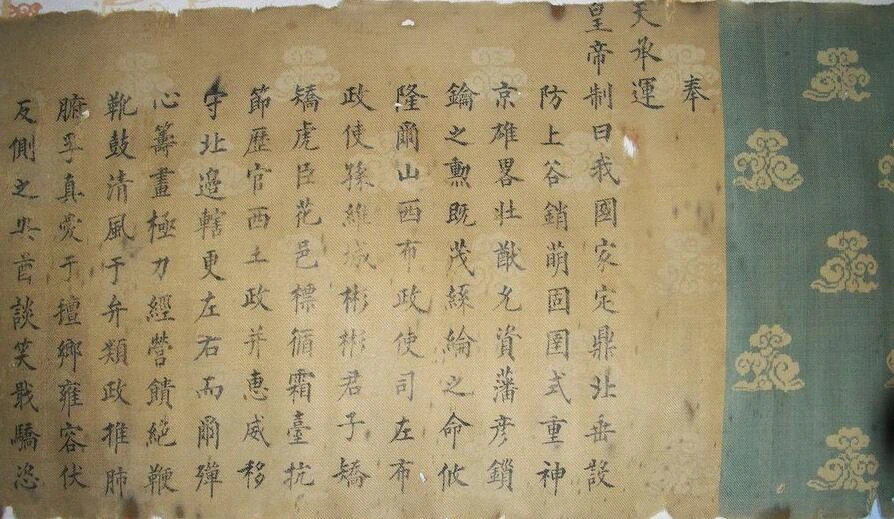 奉
天承運
皇帝制曰我國家定鼎北垂設
防上谷銷萌固圉式重神
京雄畧壯猷允資藩彥鎖
鑰之勳既茂絲綸之命攸
隆爾山西布政使司左布
政使孫維城彬彬君子矯
矯虎臣花邑標循霜臺抗
節歷官西土政并惠威移
守北邊轄更左右而爾殫
心籌畫極力經營饋絕鞭
靴鼓清風于弁類政推肺
腑孚真愛于氊鄉雍容伏
反側之酋談笑戢驕恣